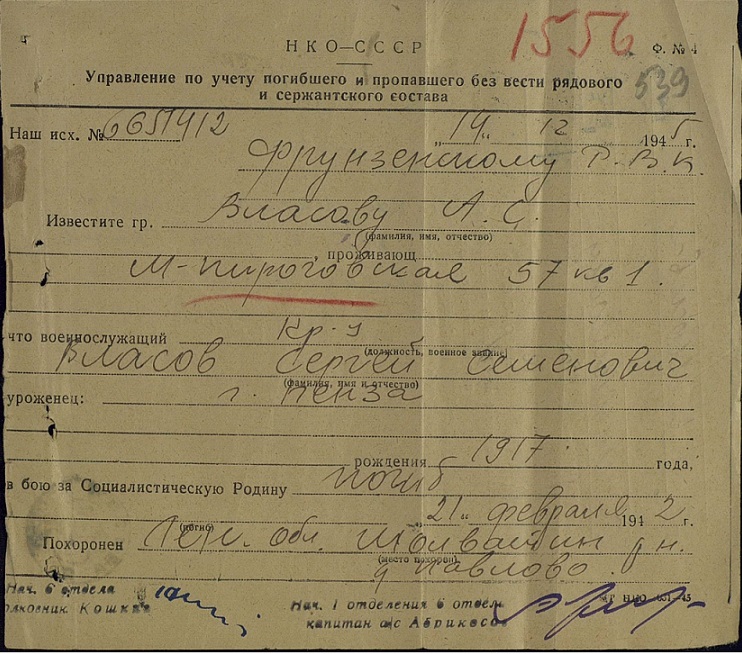 НКО—СССР
1556
Ф. № 4
Управление по учету погибшего и пропавшего без вести рядового
и сержантского состава
539
Наш исх. № 6651412 „14„ 12 1945 г.
Фрунзенскому Р.В.К.
Известите гр. Власову А. С.
(фамилия, имя, отчество)
проживающ
М-Пироговская 57 кв 1.
что военнослужащий Кр-ц
(должность, военное звание)
Власов Сергей Семенович
(фамилия, имя и отчество)
уроженец: г. Пенза
рождения 1917 года,
в бою за Социалистическую Родину погиб
„21„ февраля 1942 г.
(погиб)
Похоронен Лен. обл.
(место похорон)
д Павлово
Нач. 6 отдела
Нач. 1 отделения 6 отдела
капитан а/с